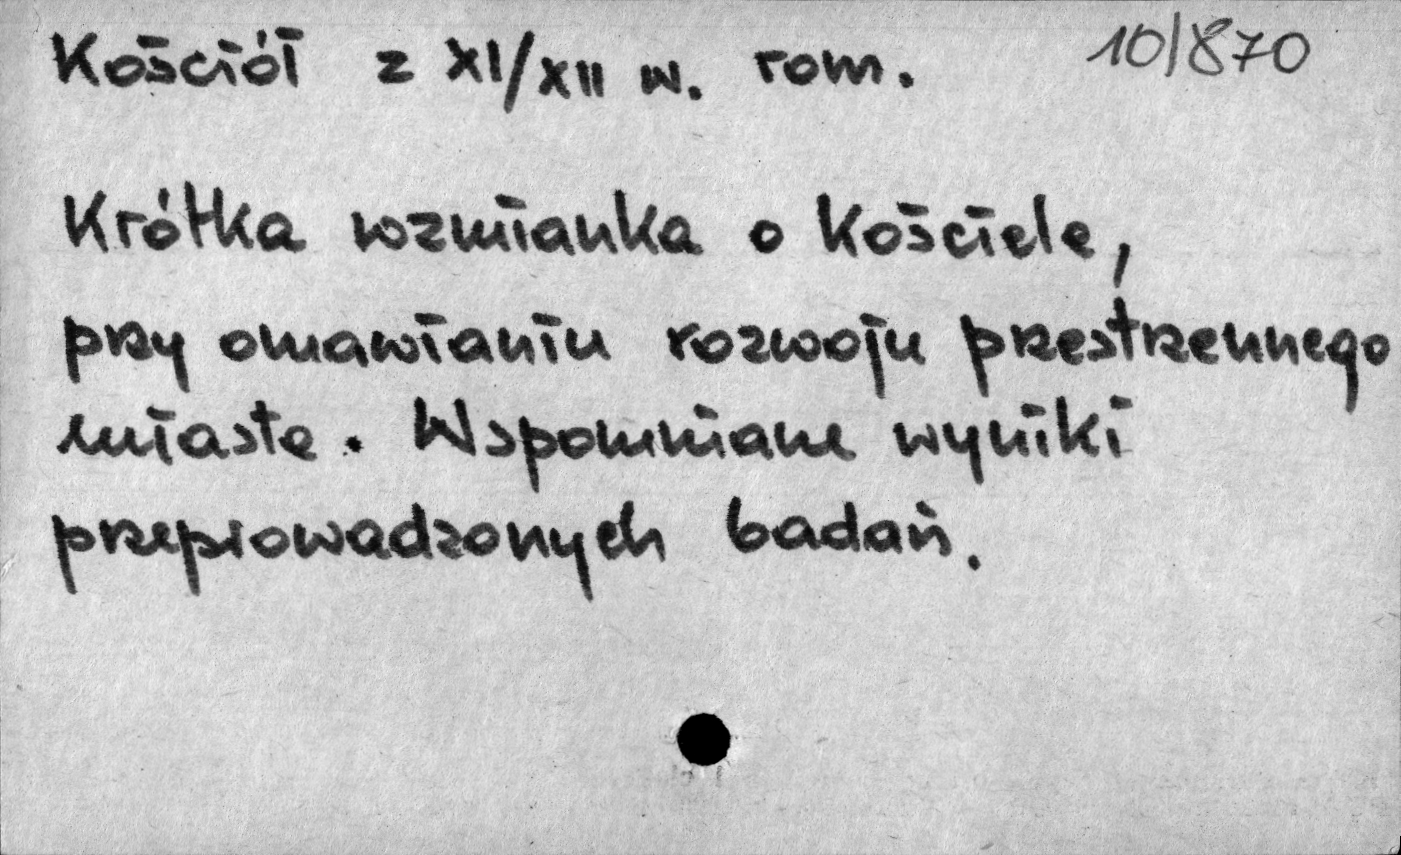 Kościół z XI/XII w. rom. 10/870
Krótka wzmianka o kościele,
przy omawianiu rozwoju przestrzennego
miasta. Wspomniane wyniki
przeprowadzonych badań.